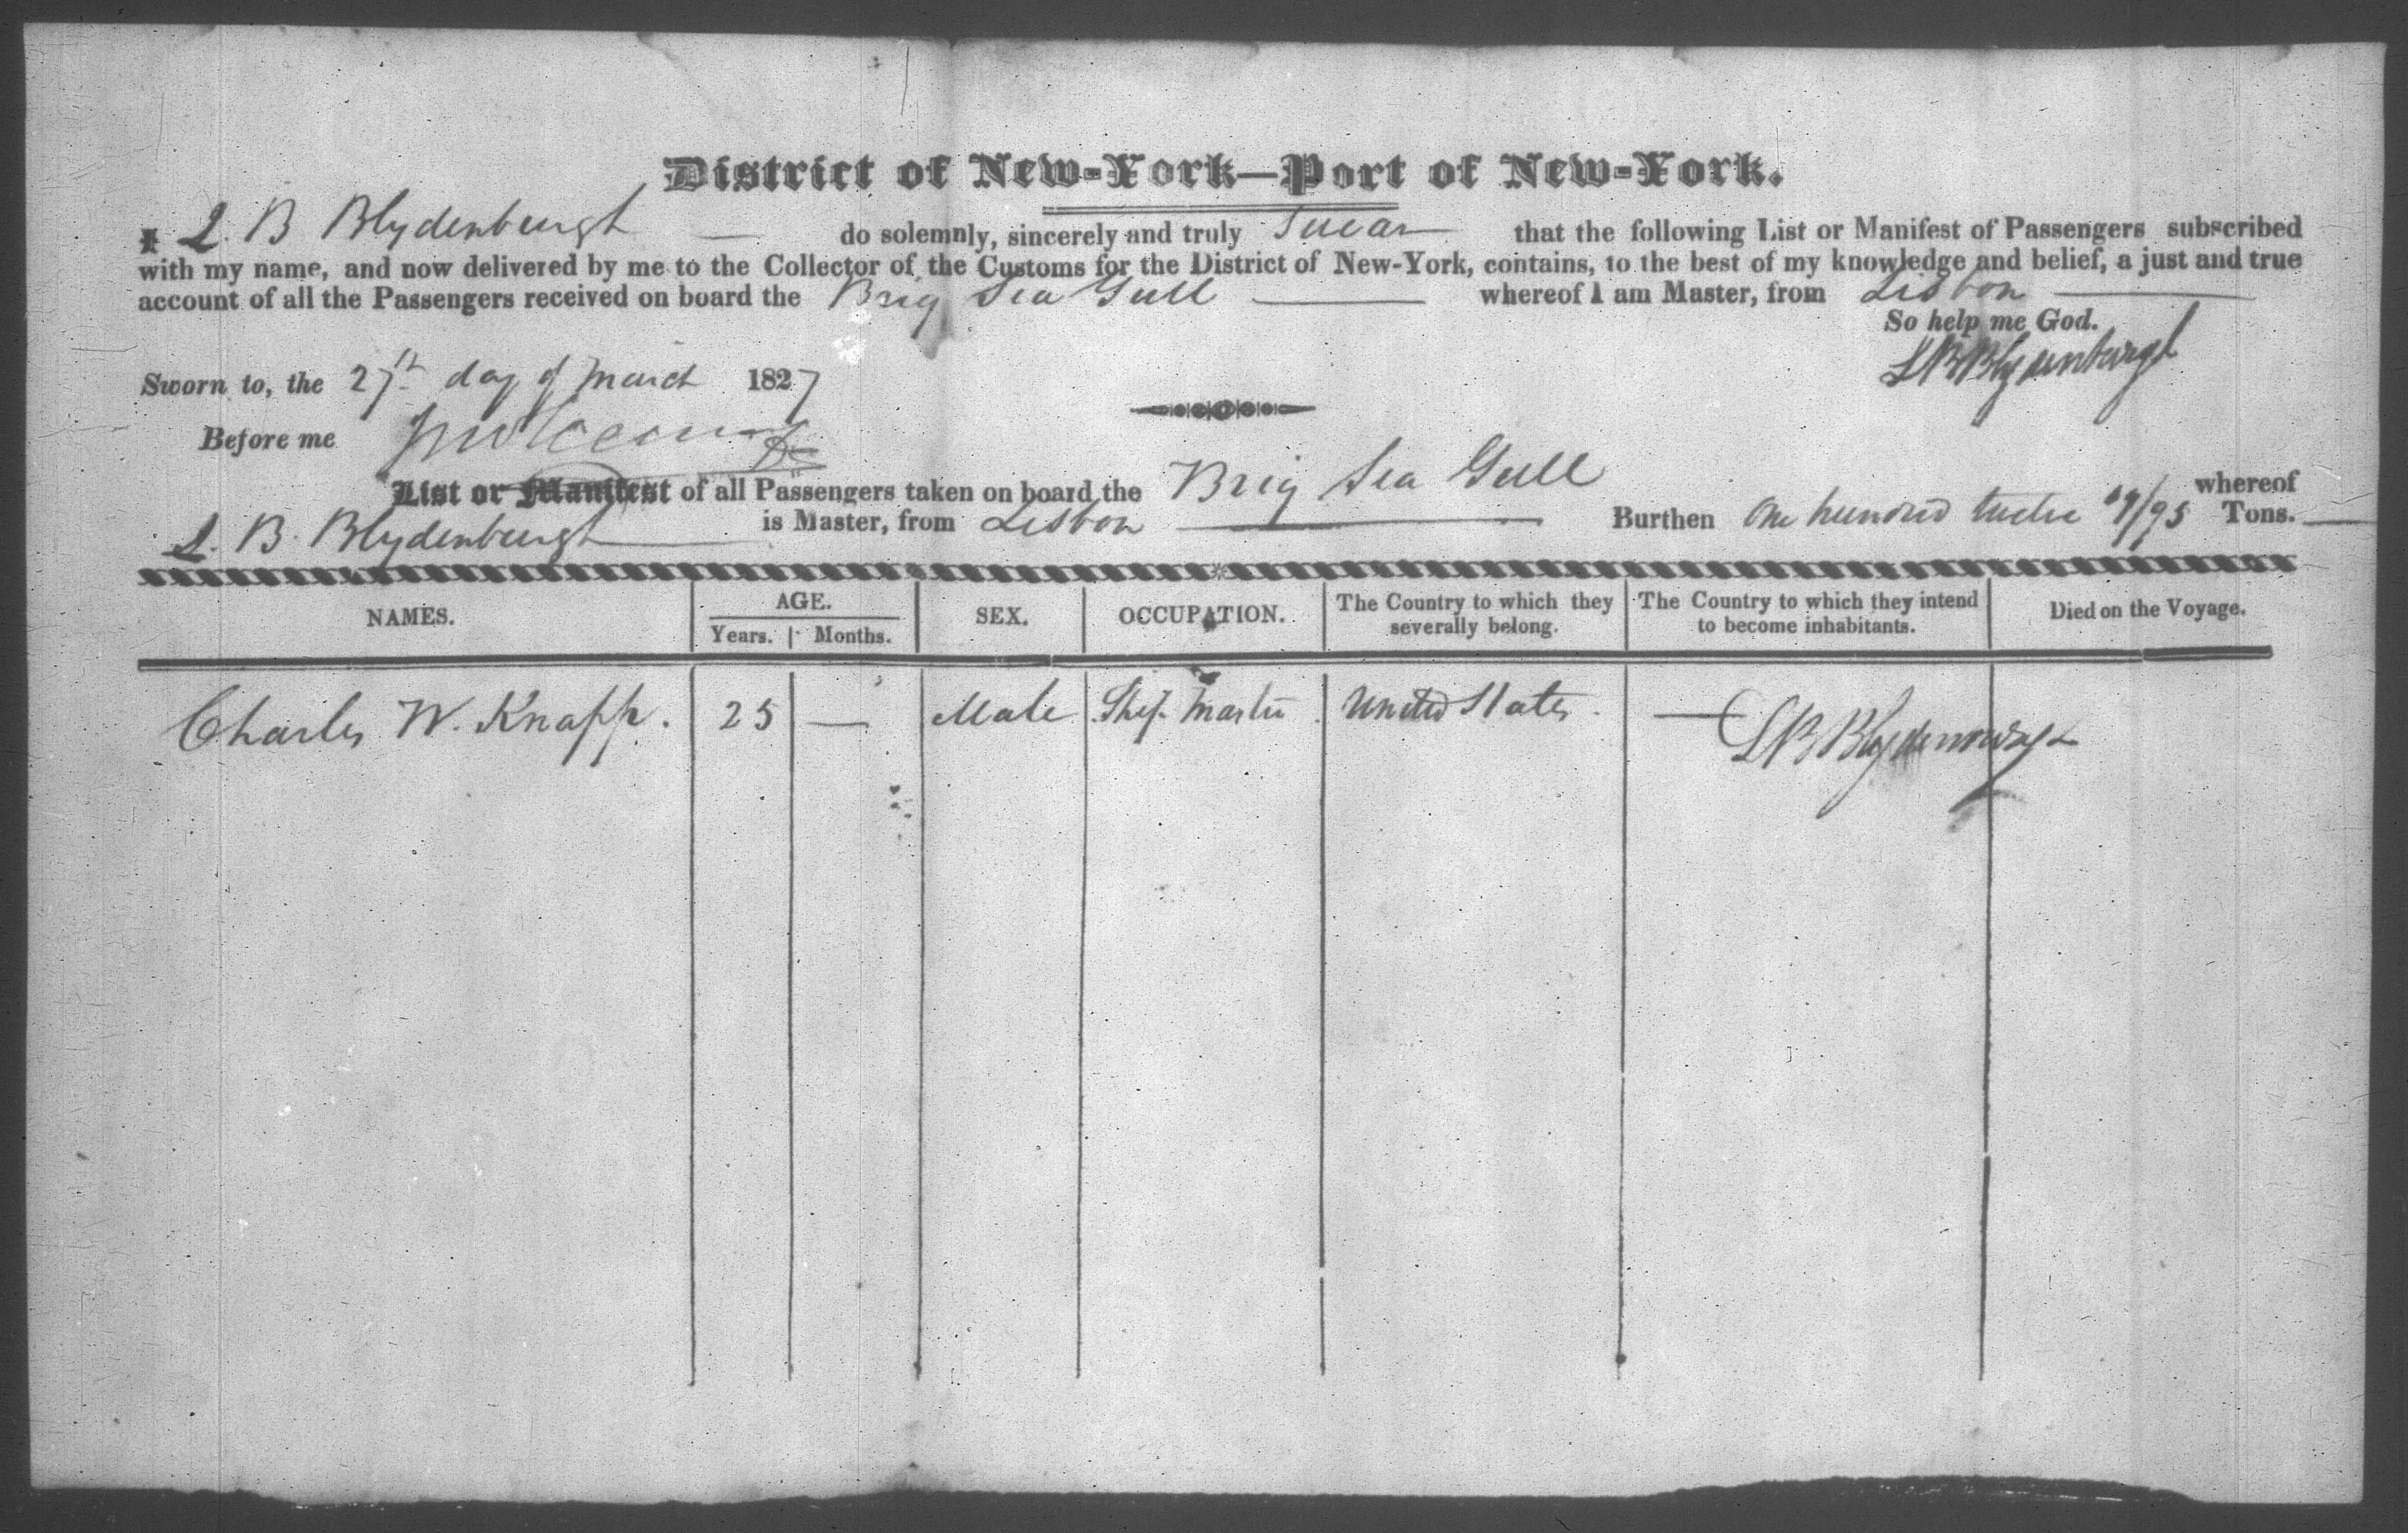 District of New-York—Port of New-York.
I L. B Blydenburgh — do solemnly, sincerely and truly Swear that the following List or Manifest of Passengers subscribed
with my name, and now delivered by me to the Collector of the Customs for the District of New-York, contains, to the best of my knowledge and belief, a just and true
account of all the Passengers received on board the Brig Sea Gull — whereof I am Master, from Lisbon —
So help me God.
L B Blydenburgh
Sworn to, the 27th day of March 1827
Before me
List or Manifest of all Passengers taken on board the Brig Sea Gull whereof
L. B. Blydenburgh is Master, from Lisbon — Burthen One hundred twelve 69/95 Tons.
NAMES. AGE. SEX. OCCUPATION. The Country to which they severally belong. The Country to which they intend to become inhabitants. Died on the Voyage.
Years. Months.
Charles W. Knapp. 25 — Male Ship Master. United States. —
L B Blydenburgh